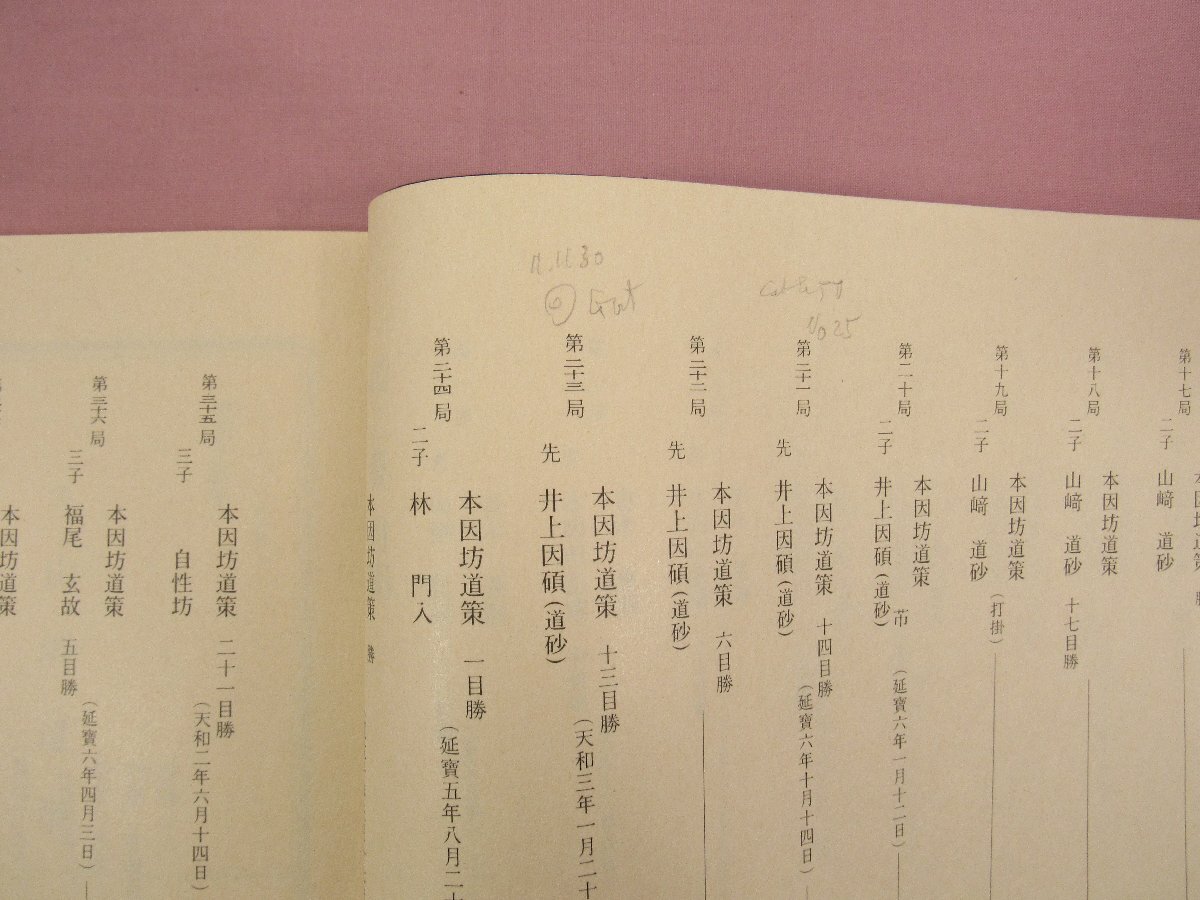 第十七局
二子
山﨑 道砂
勝
第十八局
本因坊道策
二子
山﨑 道砂
十七目勝
第十九局
本因坊道策
二子
山﨑 道砂
（打掛）
第二十局
本因坊道策
二子
井上因碩（道砂）
（延寶六年一月十二日）
No 25
第二十一局
本因坊道策
十四目勝
先
井上因碩（道砂）
（延寶六年十月十四日）
第二十二局
本因坊道策
六目勝
先
井上因碩（道砂）
11.1130
第二十三局
本因坊道策
十三目勝
先
井上因碩（道砂）
（天和三年一月二十
第二十四局
本因坊道策
一目勝
二子
林 門入
（延寶五年八月二十
本因坊道策
勝
第三十五局
本因坊道策
二十一目勝
三子
自性坊
（天和二年六月十四日）
第三十六局
本因坊道策
三子
福尾 玄故
五目勝
（延寶六年四月三日）
本因坊道策